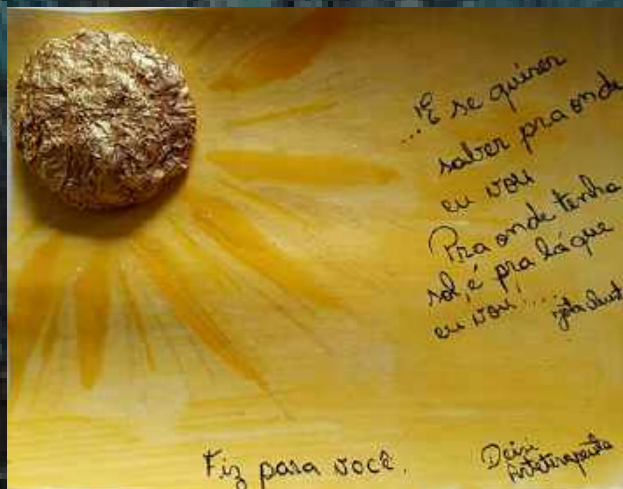 ...E se quiser
saber pra onde
eu vou
Pra onde tenha
sol, é pra lá que
eu vou!...
Jota Quest
Fiz para você.
Deisi
Arteterapeuta